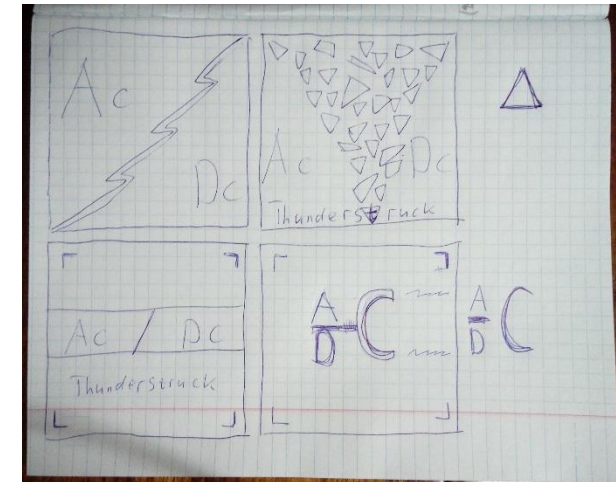 Ac
Dc
Ac Dc
Thunderstruck
Ac / Dc
Thunderstruck
A
D
C
A
D
C